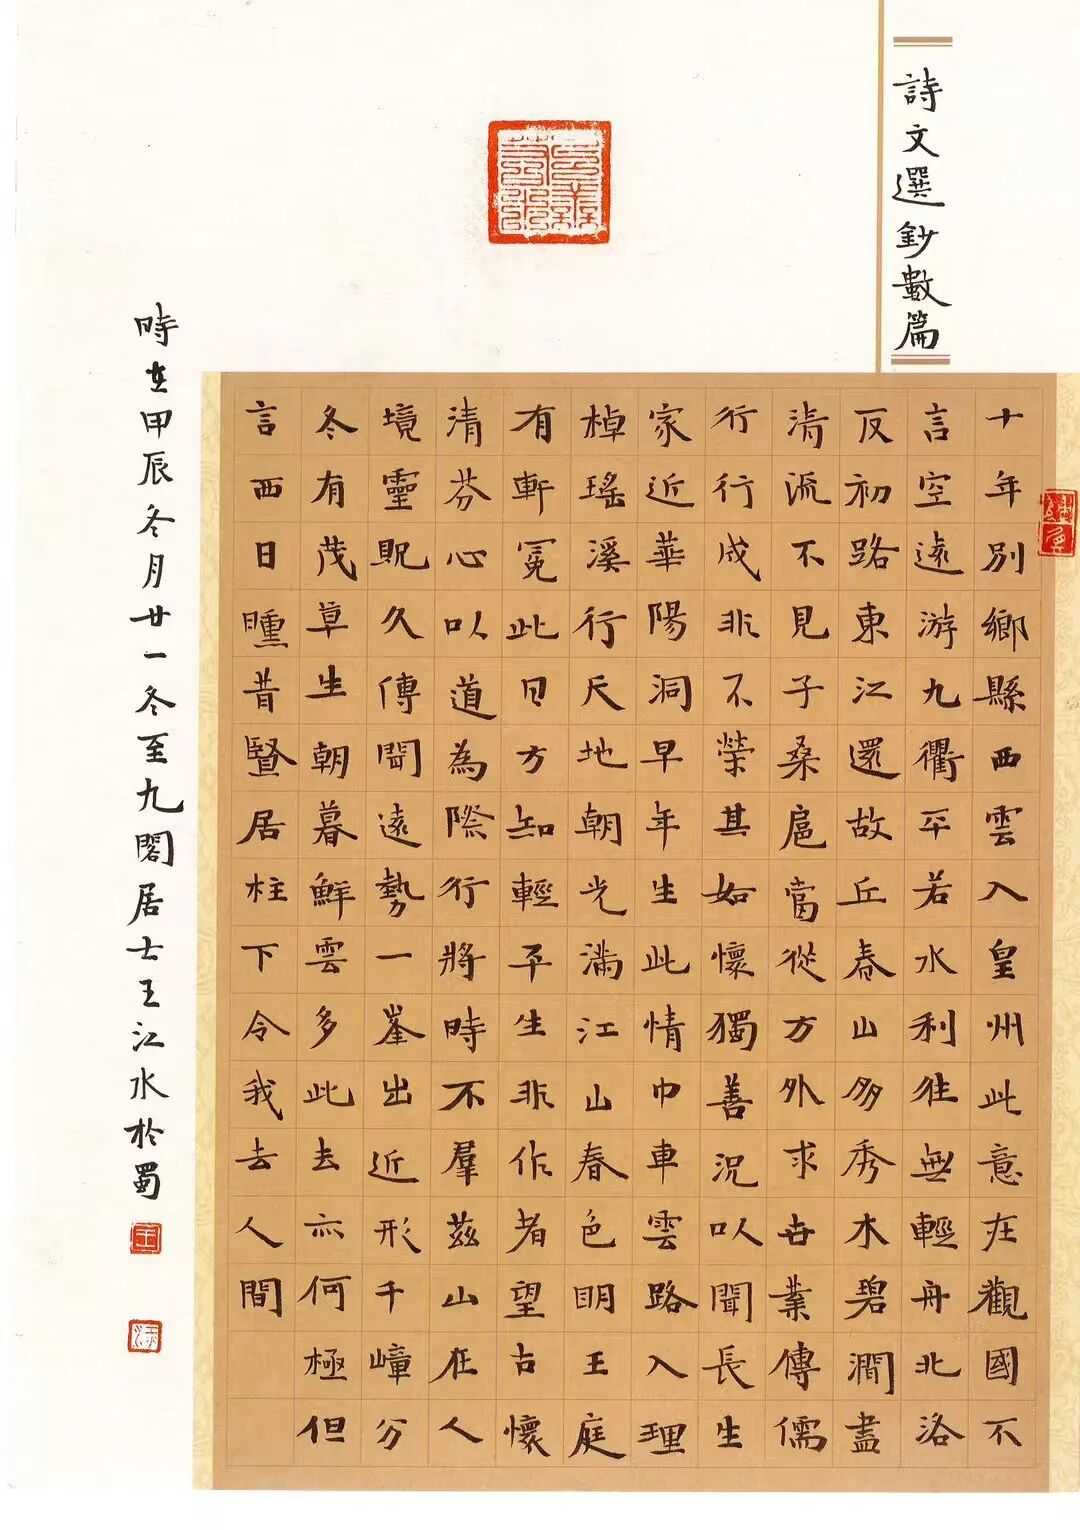 詩文選鈔數篇
十年別鄉縣西雲入皇州此意在觀國不
言空遠游九衢平若水利往無輕舟北洛
反初路東江還故丘春山多秀木碧澗盡
清流不見子桑扈當從方外求世業傳儒
行行成非不榮其如懷獨善況以聞長生
家近華陽洞早年生此情巾車雲路入理
棹瑤溪行天地朝光滿江山春色明王庭
有軒冕此日方知輕平生非作者望古懷
清芬心以道為際行將時不羣茲山在人
境靈貺久傳聞遠勢一峯出近形千嶂分
冬有茂草生朝暮鮮雲多此去亦何極但
言西日曛昔賢居柱下今我去人間
時在甲辰冬月廿一冬至九閣居士王江水於蜀